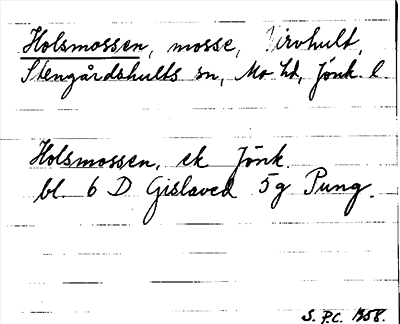 Holsmossen, mosse, Virvhult,
Stengårdshults sn, Mo hd, Jönk. l.
Holsmossen, ek Jönk.
bl. 6 D Gislaved 5g Pung.
S.P.C. 1958.